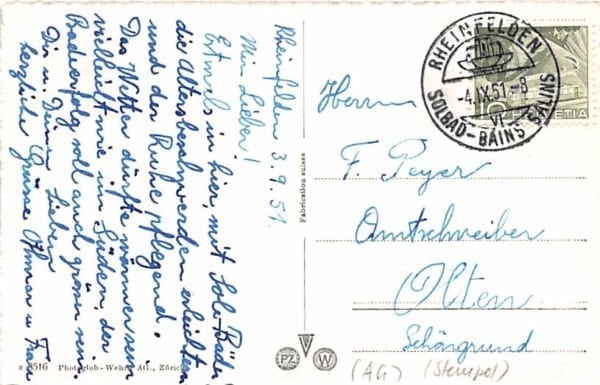 Rheinfelden 3.9.51.
Mein Lieber!
in hier, mit Sole-Bäder
die Altersbeschwerden
und der Ruhe pflegend.
Das Wetter dürfte wärmer sein
vielleicht wie im Süden, der
soll auch sein.
Dir u. Deinen Lieben
herzliche Grüsse Othmar u Frau
8516 Photoglob-Wehrli AG., Zürich
Fabrication suisse
PZ W
RHEINFELDEN
-4.IX.51-8
VI
SOLBAD-BAINS SALINS
10 HELVETIA
Herrn
F. Peyer
Amtschreiber
Olten
Schöngrund
(AG) (Stempel)